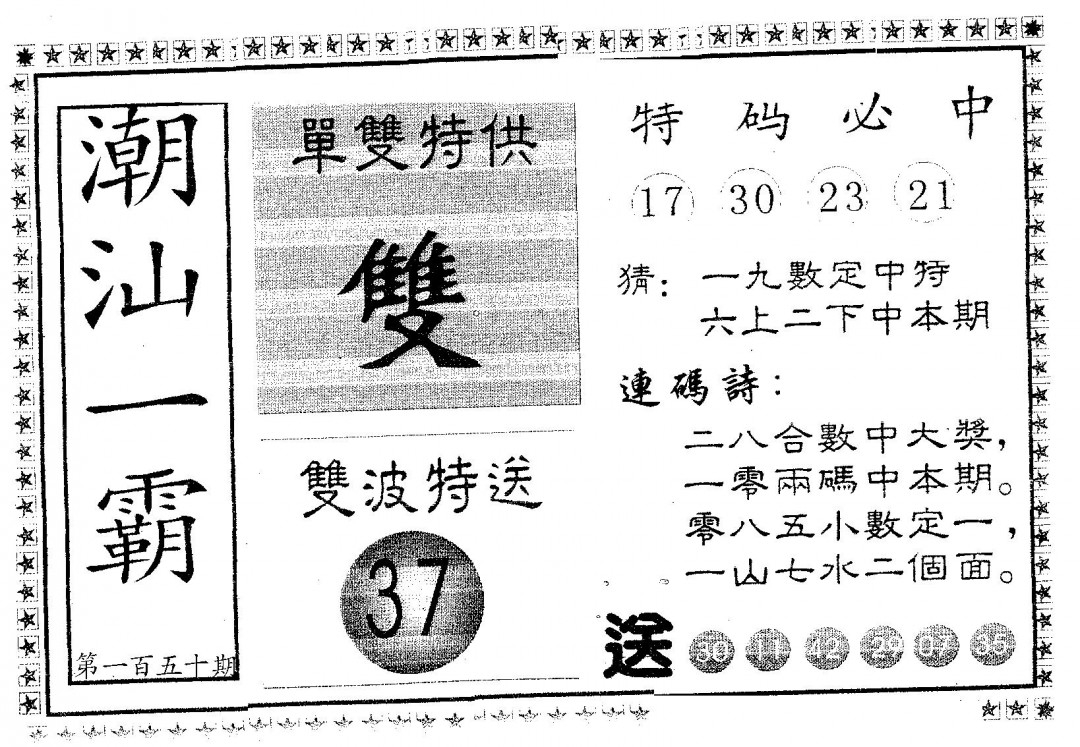 潮汕一霸
第一百五十期
單雙特供
雙
雙波特送
37
特码必中
17 30 23 21
猜：一九數定中特
六上二下中本期
連碼詩：
二八合數中大獎，
一零兩碼中本期。
零八五小數定一，
一山七水二個面。
送 30 11 42 29 07 35